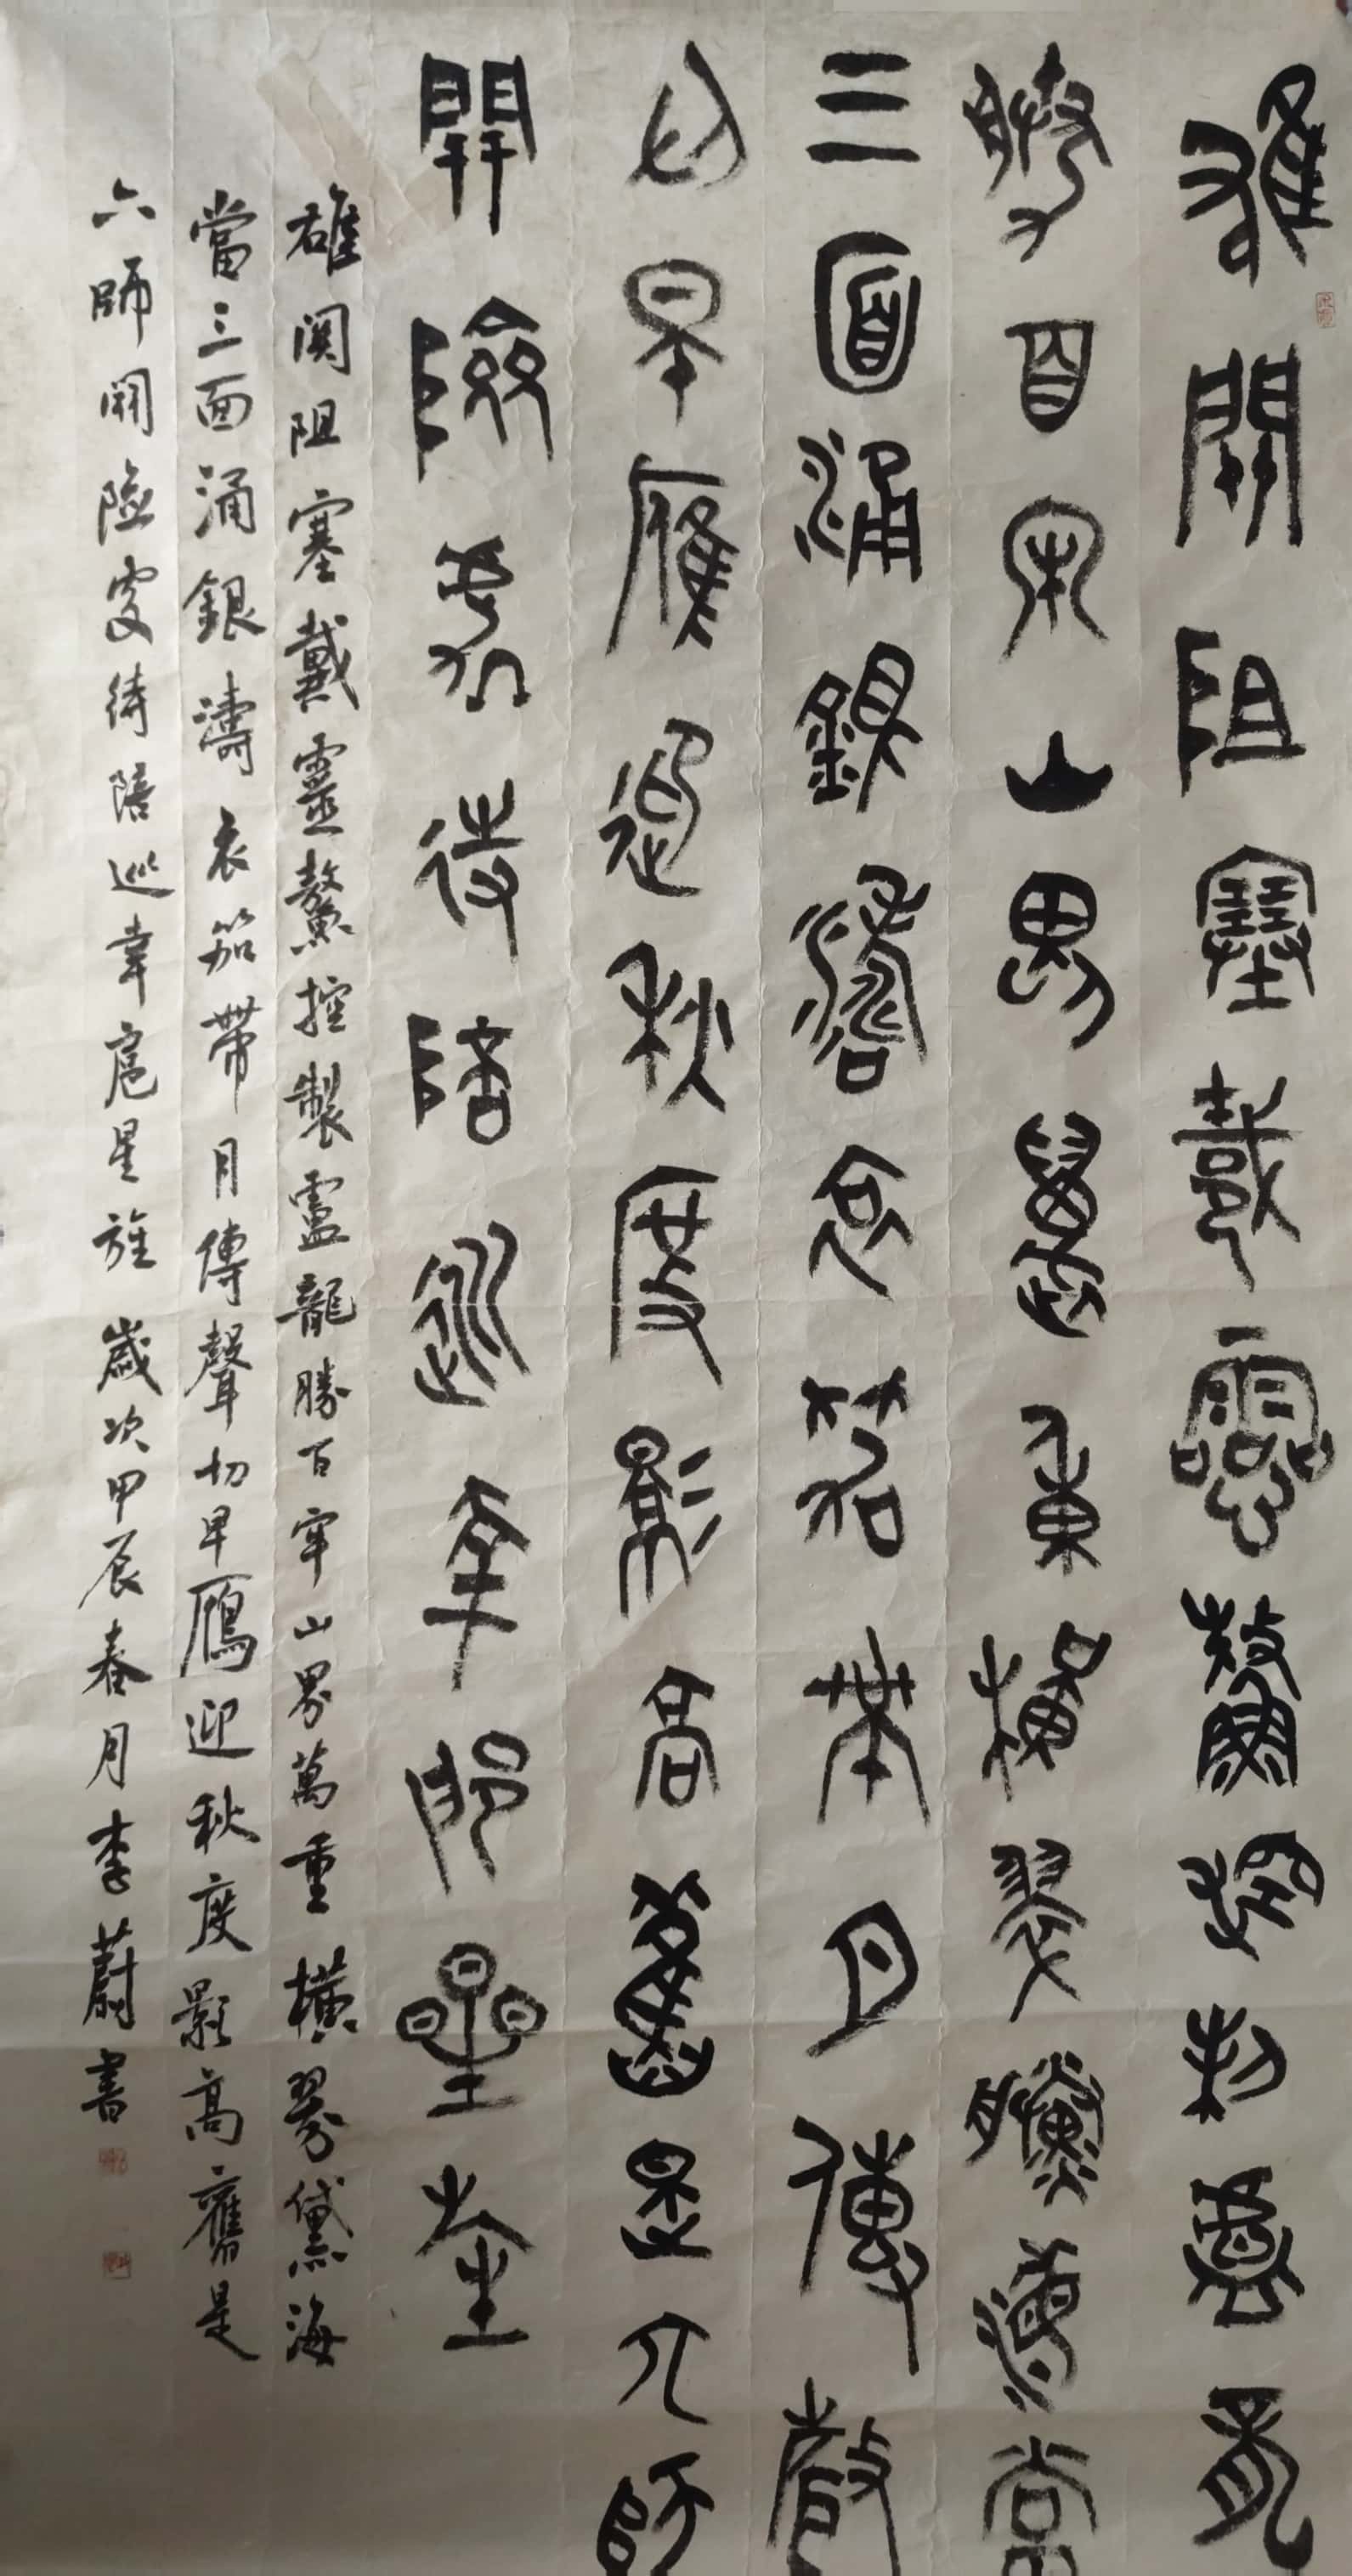 雄關阻塞戴靈鰲控制盧龍
勝百牢山界萬重橫翠黛海當
三面涌銀濤衣笳帶月傳聲
切早雁迎秋度影高舊是六師
開險處待陪巡幸扈星旄
雄関阻塞戴靈鰲控製盧龍勝百牢山界萬重橫翠黛海
當三面涌銀濤衣笳帶月傳聲切早鴈迎秋度影高舊是
六師開險處待陪巡幸扈星旄 歲次甲辰春月李蔚書